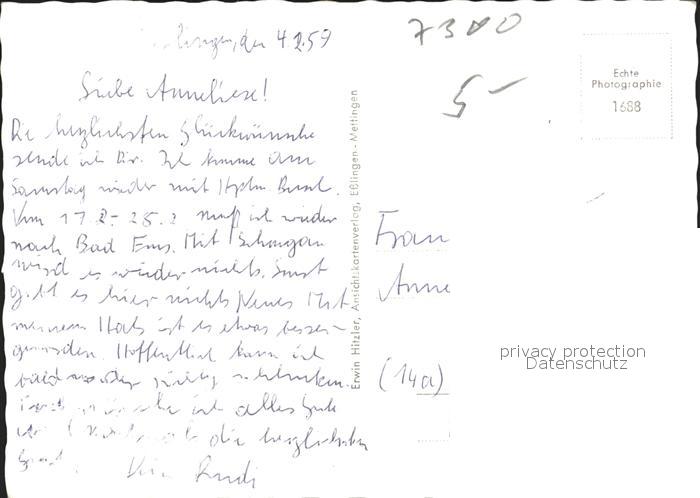 lingen, den 4.2.59
Liebe Anneliese!
Die herzlichsten Glückwünsche
sende ich Dir. Ich komme am
Samstag wieder mit
Vom 17.2-25.2 muß ich wieder
nach Bad Ems. Mit
wird es wieder nichts. Sonst
gibt es hier nichts Neues. Mit
meinem Hals ist es etwas besser
geworden. Hoffentlich kann ich
bald wieder richtig schlucken.
ich alles Gute
die herzlichsten
Dein Rudi
Erwin Hitzler, Ansichtskartenverlag, Eßlingen-Mettingen
7300
5-
Echte
Photographie
1688
Frau
Anne
(14a)
privacy protection
Datenschutz